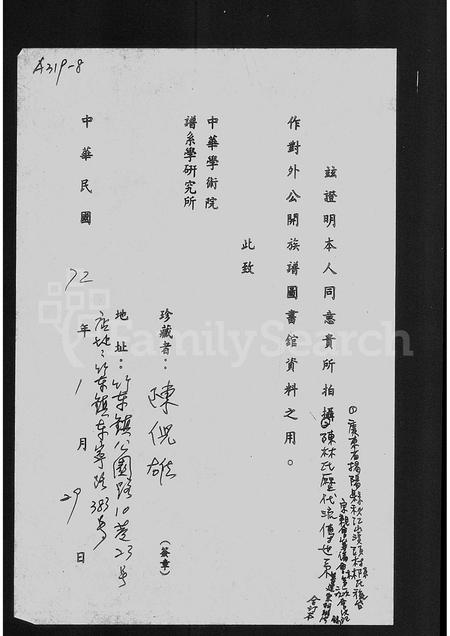 A319-8
茲證明本人同意貴所拍攝陳林氏歷代流傳世系
作對外公開族譜圖書館資料之用。
此致
中華學術院
譜系學研究所
珍藏者：陳倪雄 (簽章)
地址：竹東鎮公園路10巷23号
店址：竹東鎮東寧路383号
中華民國 72 年 1 月 29 日
FamilySearch